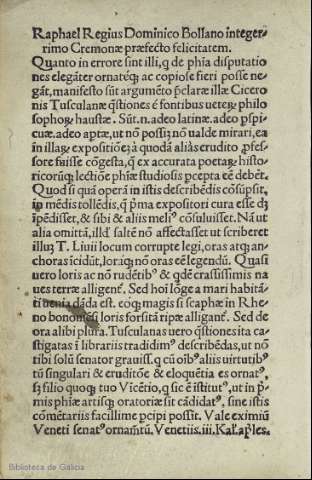 Raphael Regius Dominico Bollano integer
rimo Cremonæ præfecto felicitatem.
Quanto in errore sint illi, q de phīa disputatio
nes elegāter ornateq; ac copiose fieri posse ne
gāt, manifesto sūt argumēto p̄claræ illæ Cicero
nis Tusculanæ q̄stiones é fontibus ueteꝝ philo
sophoꝝ haustæ. Sūt.n.adeo latinæ. adeo p̄spi
cuæ. adeo aptæ, ut nō possiȝ nō ualde mirari, ea
in illaꝝ expositiōe à quodā aliàs erudito p̄fes
sore fuisse cōgesta, q̄ ex accurata poetaꝝ histo
ricorūq; lectiōe phīæ studiosis p̄cepta eē debēt.
Quod si quā operā in istis describēdis cōsūpsit,
in mēdis tollēdis, q̄ prīa expositori cura esse dȝ
īpēdisset, & sibi & aliis meli⁹ cōsuluisset. Nā ut
alia omittā, illd̄ saltē nō affectasset ut scriberet
illuȝ T. Liuii locum corrupte legi, oras atq; an
choras īcidūt, lorāq; nō oras eē legendū. Quasi
uero loris ac nō rudētib⁹ & qdē crassissimis na
ues terræ alligent᷑. Sed hoī lōge a mari habitā
ti uenia dāda est. eoq; magis si scaphæ in Rhe
no bononiēsi loris forsitā ripæ alligant᷑. Sed de
ora alibi plura. Tusculanas uero q̄stiones ita ca-
stigatas ī librariis tradidim⁹ describēdas, ut nō
tibi solū senator grauiss. q cū oīb⁹ aliis uirtutib⁹
tū singulari & eruditōe & eloquētia es ornat⁹,
sȝ filio quoq; tuo Vīcētio, q sic ē īstitut⁹, ut in p̄
mis phīæ artisq; oratoriæ sit cādidat⁹, sine istis
cōmētariis facillime p̄cipi possīt. Vale eximiū
Veneti senat⁹ ornam̄tū. Venetiis. iii. Kal. ap̄les.
Biblioteca de Galicia